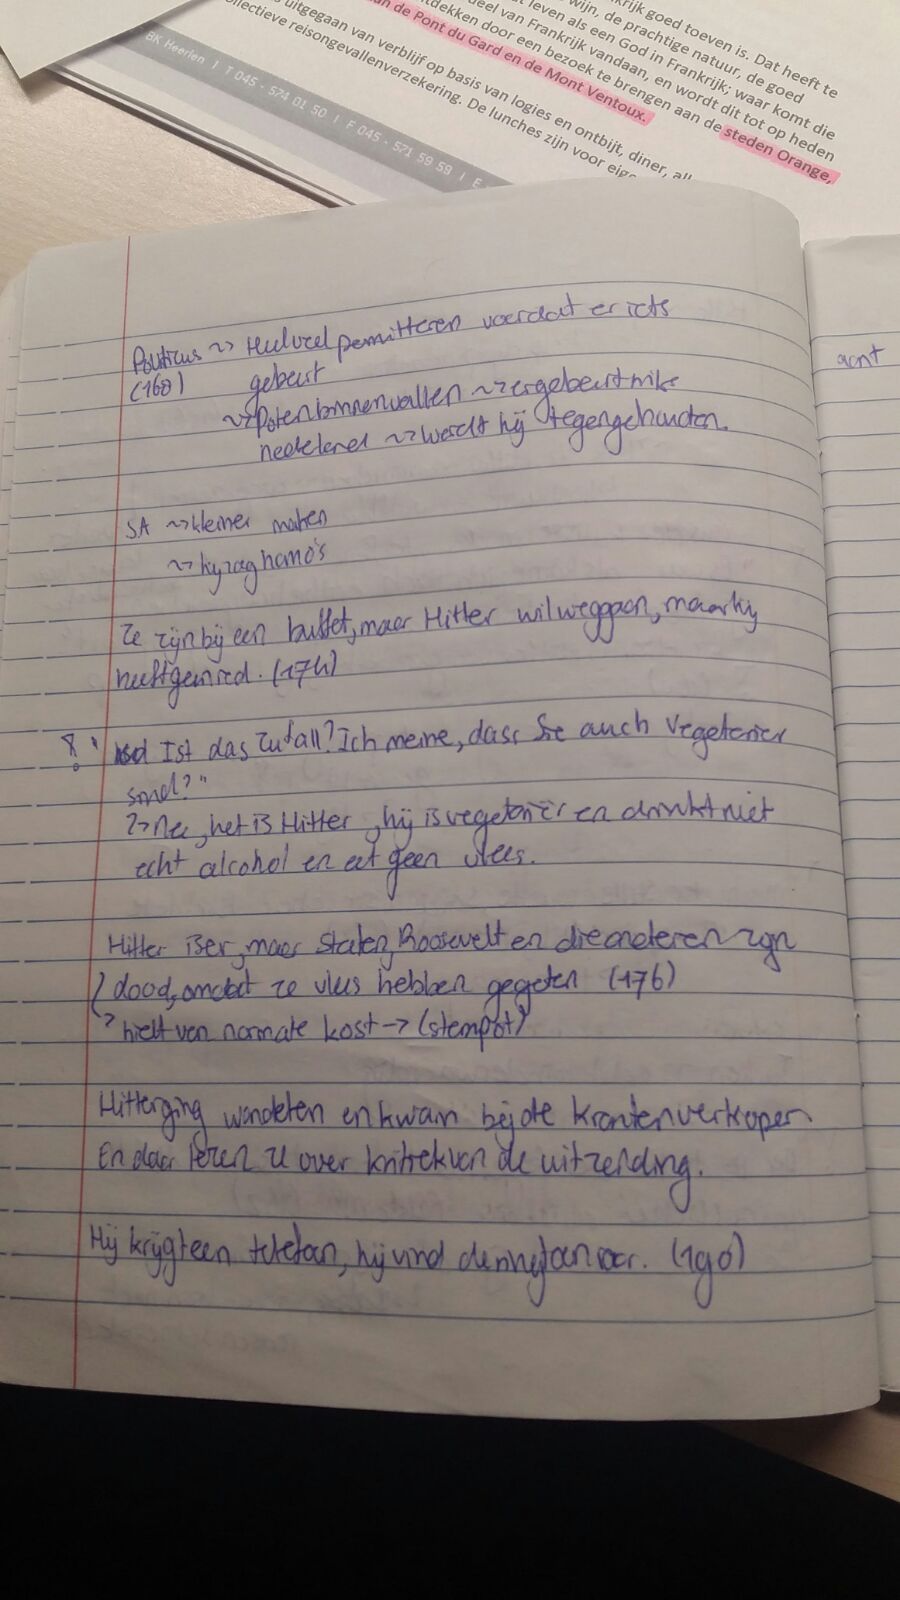 krijk goed toeven is. Dat heeft te
wijn, de prachtige natuur, de goed
t leven als een God in Frankrijk; waar komt die
deel van Frankrijk vandaan, en wordt dit tot op heden
tdekken door een bezoek te brengen aan de steden Orange,
an de Pont du Gard en de Mont Ventoux.
s uitgegaan van verblijf op basis van logies en ontbijt, diner, all
ollectieve reisongevallenverzekering. De lunches zijn voor eige
BK Heerlen | T 045 - 574 01 50 | F 045 - 571 59 59 | E
Politicus ~> Heel veel permitteren voordat er iets
(168) gebeurt
~> Poten binnenvallen ~> er gebeurt niks
nederland ~> werdt hij tegengehouden.
SA ~> kleiner maken
~>
Ze zijn bij een buffet, maar Hitler wil weggaan, maar hij
heeft geen (174)
" Ist das Zufall? Ich meine, dass Sie auch Vegetarier
sind?"
~> Nee, het is Hitler, hij is vegetariër en drinkt niet
echt alcohol en eet geen vlees.
Hitler is er, maar Stalen, Roosevelt en die anderen zijn
dood, omdat ze vlees hebben gegeten (176)
> hielt van normale kost -> (stempot)
Hitler ging wandelen en kwam bij de krantenverkoper.
En daar lezen ze over kritiek van de uitzending.
Hij krijgt een telefoon, hij vind (190)
acht